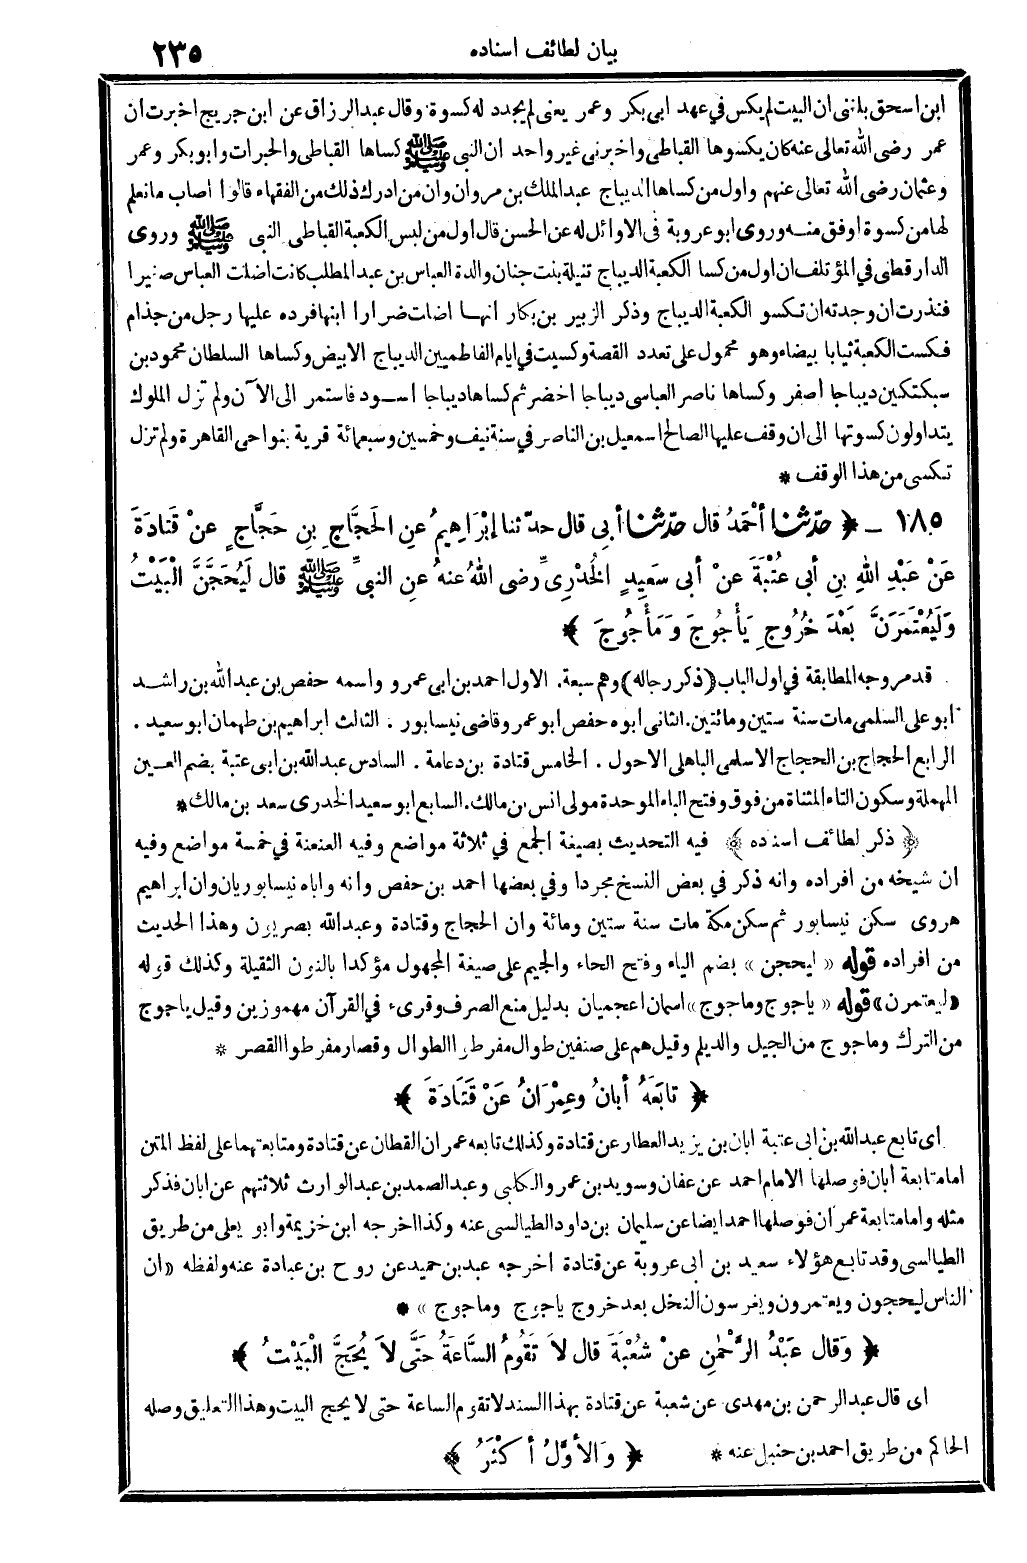 بيان لطائف اسناده ٢٣٥
ابن اسحق بلغنى ان البيت لم يكس في عهد ابى بكر وعمر يعنى لم يجدد له كسوة وقال عبد الرزاق عن ابن جريج اخبرت ان
عمر رضى الله تعالى عنه كان يكسوها القباطى واخبرنى غير واحد ان النبي ﷺ كساها القباطى والحبرات وابو بكر وعمر
وعثمان رضى الله تعالى عنهم واول من كساها الديباج عبد الملك بن مروان وان من ادرك ذلك من الفقهاء قالوا اصاب مانعلم
لها من كسوة اوفق منه وروى ابو عروبة في الاوائل له عن الحسن قال اول من لبس الكعبة القباطى النبي ﷺ وروى
الدارقطنى في المؤتلف ان اول من كسا الكعبة الديباج نتيلة بنت جنان والدة العباس بن عبد المطلب كانت اضلت العباس صغيرا
فنذرت ان وجدته ان تكسو الكعبة الديباج وذكر الزبير بن بكار انها اضلت ضرارا ابنها فرده عليها رجل من جذام
فكست الكعبة ثيابا بيضاء وهو محمول على تعدد القصة وكسيت في ايام الفاطميين الديباج الابيض وكساها السلطان محمود بن
سبكتكين ديباجا أصفر وكساها ناصر العباسى ديباجا اخضر ثم كساها ديباجا اسود فاستمر الى الآن ولم تزل الملوك
يتداولون كسوتها الى ان وقف عليها الصالح اسمعيل بن الناصر في سنة نيف وخمسين وسبعمائة قرية بنواحى القاهرة ولم تزل
تكسى من هذا الوقف *
١٨٥ – ﴿ حدّثنا أحْمَدُ قال حدّثنا أبِي قال حدّثنا إبْرَاهِيمُ عنِ الحَجَّاجِ بنِ حَجَّاجٍ عنْ قَتَادَةَ
عَنْ عَبْدِ اللهِ بنِ أبى عُتْبَةَ عَنْ أبى سَعِيدٍ الخُدْرِىِّ رضى اللهُ عنهُ عنِ النبىِّ ﷺ قال لَيُحَجَّنَّ الْبَيْتُ
وَلَيُعْتَمَرَنَّ بَعْدَ خُرُوجِ يَأْجُوجَ وَمَأْجُوجَ ﴾
قد مر وجه المطابقة في اول الباب (ذكر رجاله) وهم سبعة . الاول احمد بن ابى عمرو واسمه حفص بن عبد الله بن راشد
ابو على السلمى مات سنة ستين ومائتين . الثانى ابوه حفص ابو عمر وقاضى نيسابور . الثالث ابراهيم بن طهمان ابو سعيد .
الرابع الحجاج بن الحجاج الاسلمى الباهلى الاحول . الخامس قتادة بن دعامة . السادس عبد الله بن ابى عتبة بضم العين
المهملة وسكون التاء المثناة من فوق وفتح الباء الموحدة مولى انس بن مالك . السابع ابو سعيد الخدرى سعد بن مالك *
﴿ ذكر لطائف اسناده ﴾ فيه التحديث بصيغة الجمع في ثلاثة مواضع وفيه العنعنة في خمسة مواضع وفيه
ان شيخه من افراده وانه ذكر في بعض النسخ مجردا وفي بعضها احمد بن حفص وانه واباه نيسابوريان وان ابراهيم
هروى سكن نيسابور ثم سكن مكة مات سنة ستين ومائة وان الحجاج وقتادة وعبد الله بصريون وهذا الحديث
من افراده قوله « ليحجن » بضم الياء وفتح الحاء والجيم على صيغة المجهول مؤكدا بالنون الثقيلة وكذلك قوله
«ليعتمرن» قوله « ياجوج وماجوج » اسمان اعجميان بدليل منع الصرف وقرىء في القرآن مهموزين وقيل ياجوج
من الترك وماجوج من الجيل والديلم وقيل هم على صنفين طوال مفرطوا الطوال وقصار مفرطوا القصر *
﴿ تابَعَهُ أبانُ وعِمْرَانُ عَنْ قَتَادَةَ ﴾
اى تابع عبد الله بن ابى عتبة ابان بن يزيد العطار عن قتادة وكذلك تابعه عمران القطان عن قتادة ومتابعتهما على لفظ المتن
اما متابعة أبان فوصلها الامام احمد عن عفان وسويد بن عمرو الكلبى وعبد الصمد بن عبد الوارث ثلاثتهم عن ابان فذكر
مثله واما متابعة عمران فوصلها احمد ايضا عن سليمان بن داود الطيالسى عنه وكذا اخرجه ابن خزيمة وابو يعلى من طريق
الطيالسى وقد تابع هؤلاء سعيد بن ابى عروبة عن قتادة اخرجه عبد بن حميد عن روح بن عبادة عنه ولفظه «ان
الناس ليحجون ويعتمرون ويغرسون النخل بعد خروج ياجوج وماجوج » *
﴿ وَقال عَبْدُ الرَّحْمٰنِ عنْ شُعْبَةَ قال لاَ تَقُومُ السَّاعَةُ حَتَّى لاَ يُحَجَّ الْبَيْتُ ﴾
اى قال عبد الرحمن بن مهدى عن شعبة عن قتادة بهذا السند لاتقوم الساعة حتى لا يحج البيت وهذا التعليق وصله
الحاكم من طريق احمد بن حنبل عنه * ﴿ وَالأَوَّلُ أكْثَرُ ﴾